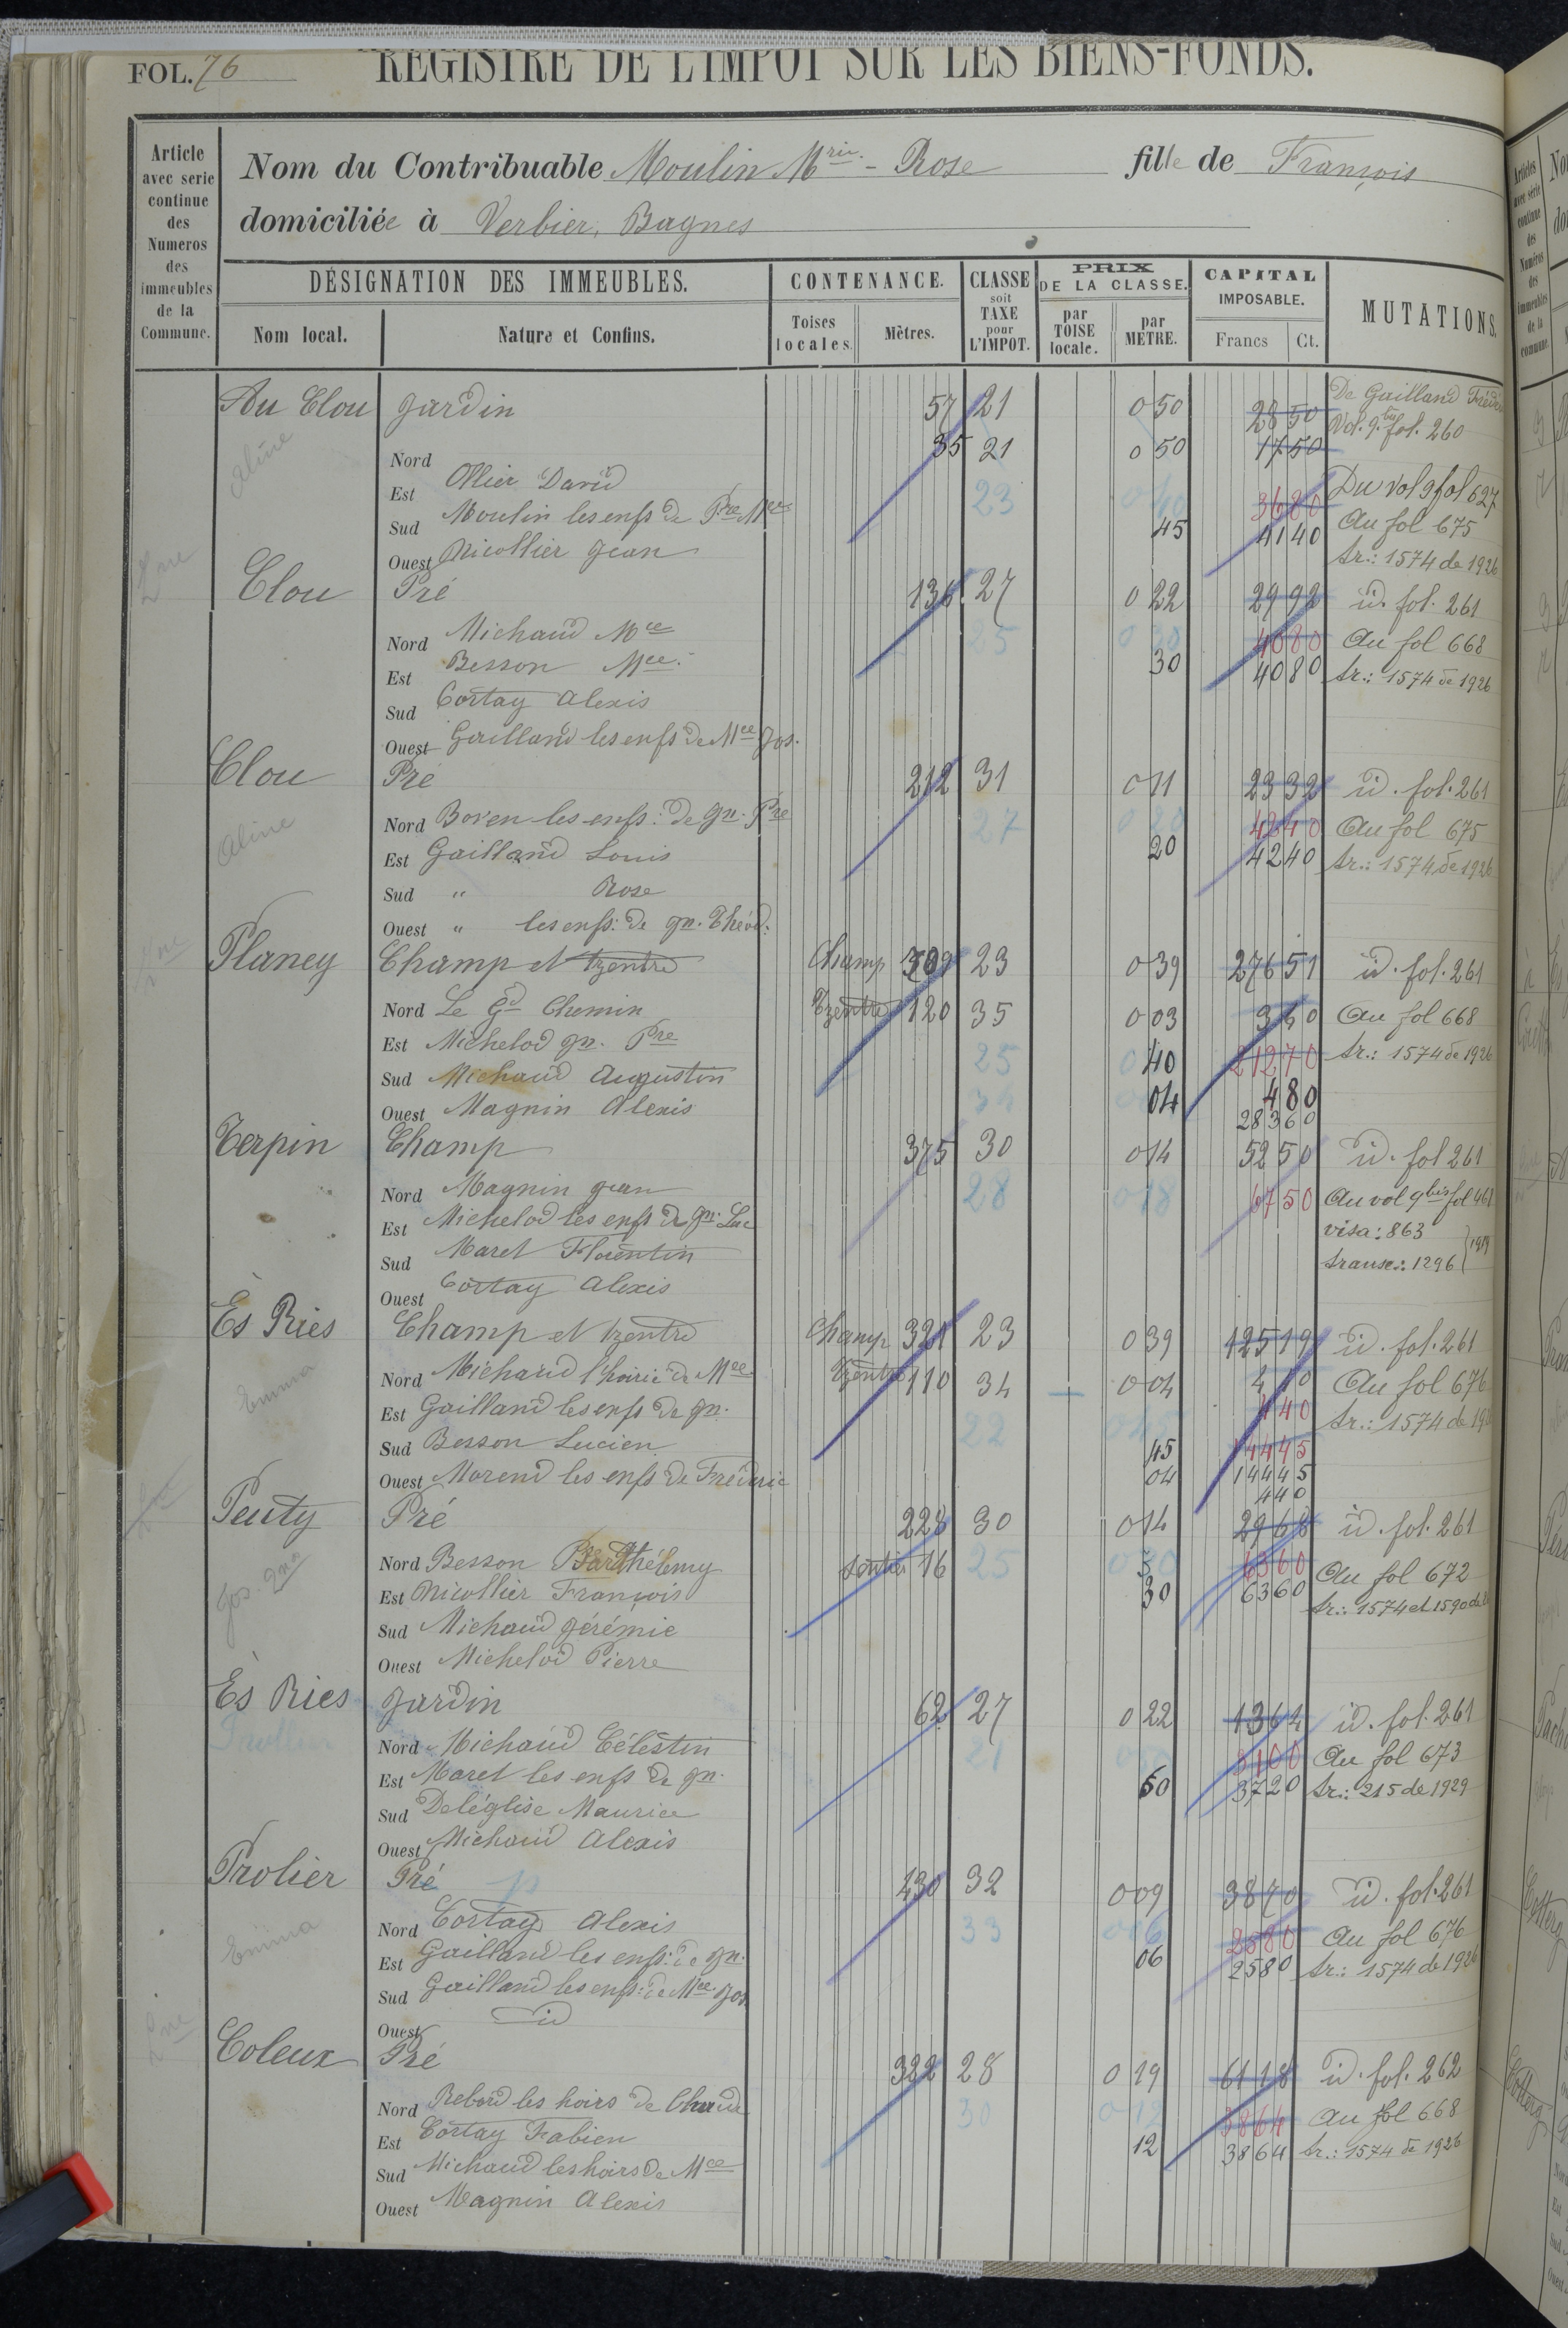 FOL. 76
REGISTRE DE L'IMPOT SUR LES BIENS-FONDS.
Article avec serie continue des Numeros des immeubles de la Commune.
Nom du Contribuable Moulin Mrie - Rose fille de François
domiciliée à Verbier, Bagnes
DÉSIGNATION DES IMMEUBLES. CONTENANCE. CLASSE soit TAXE pour L'IMPOT. PRIX DE LA CLASSE. CAPITAL IMPOSABLE. MUTATIONS.
Nom local. Nature et Confins. Toises locales. Mètres. par TOISE locale. par METRE. Francs Ct.
Au Clou Jardin 57 21 0 50 28 50 De Gailland
Aline 35 21 0 50 17 50 Vol. 9 bis fol. 260
Nord Ollier David
Est Moulin les enfs de Pre Mce 23 0 40 36 80 Du vol 9 fol 627
Sud Nicollier Jean 45 41 40 Au fol 675
Ouest tr.: 1574 de 1926
Clou Pré 136 27 0 22 29 92 id. fol. 261
Nord Michaud Mce 25 0 30 40 80 Au fol 668
Est Besson Mce. 30 40 80 tr.: 1574 de 1926
Sud Cortay Alexis
Ouest Gailland les enfs de Mce Jos.
Clou Pré 212 31 0 11 23 32 id. fol. 261
Aline Nord Boven les enfs: de Jn. Pre 27 0 20 42 40 Au fol 675
Est Gailland Louis 20 42 40 tr.: 1574 de 1926
Sud " Rose
Ouest " les enfs: de Jn. Théod:
Planey Champ et tzentre Champ 709 23 0 39 276 51 id. fol. 261
Nord Le Gd Chemin Tzentre 120 35 0 03 3 60 Au fol 668
Est Michelod Jn. Pre 25 0 40 212 70 tr.: 1574 de 1926
Sud Michaud Augustin 34 04 4 80
Ouest Magnin Alexis 283 60
Terpin Champ 375 30 0 14 52 50 id. fol 261
Nord Magnin Jean 28 0 18 67 50 Au vol 9 bis fol 461
Est Michelod les enfs de Jn. Luc visa: 863
Sud Maret Florentin transc.: 1296
Ouest Cortay Alexis
Ès Ries Champ et tzentre Champ 321 23 0 39 125 19 id. fol. 261
Emma Nord Michaud l'hoirie de Mce Tzentre 110 34 0 04 4 40 Au fol 676
Est Gailland les enfs de Jn. 22 0 45 4 40 tr.: 1574 de
Sud Besson Lucien 45 144 45
Ouest Morend les enfs de Fréderic 04 144 45
4 40
Peuty Pré 228 30 0 14 29 68 id. fol. 261
Jos. Nord Besson Barthélemy sentier 16 25 0 30 63 60 Au fol 672
Est Nicollier François 30 63 60 tr.: 1574 et 1590 de
Sud Michaud Jérémie
Ouest Michelod Pierre
Ès Ries Jardin 62 27 0 22 13 64 id. fol. 261
Nord Michaud Célestin 21 31 00 Au fol 673
Est Maret les enfs de Jn. 60 37 20 tr.: 215 de 1929
Sud Deléglise Maurice
Ouest Michaud Alexis
Prolier Pré p 430 32 0 09 38 70 id. fol. 261
Emma Nord Cortay Alexis 33 0 06 25 80 Au fol 676
Est Gailland les enfs: de Jn. 06 25 80 tr.: 1574 de 1926
Sud Gailland les enfs: de Mce Jos
Ouest id
Coleux Pré 322 28 0 19 61 18 id. fol. 262
Nord Rebord les hoirs de 30 0 12 38 64 Au fol 668
Est Cortay Fabien 12 38 64 tr.: 1574 de 1926
Sud Michaud les hoirs de Mce
Ouest Magnin Alexis